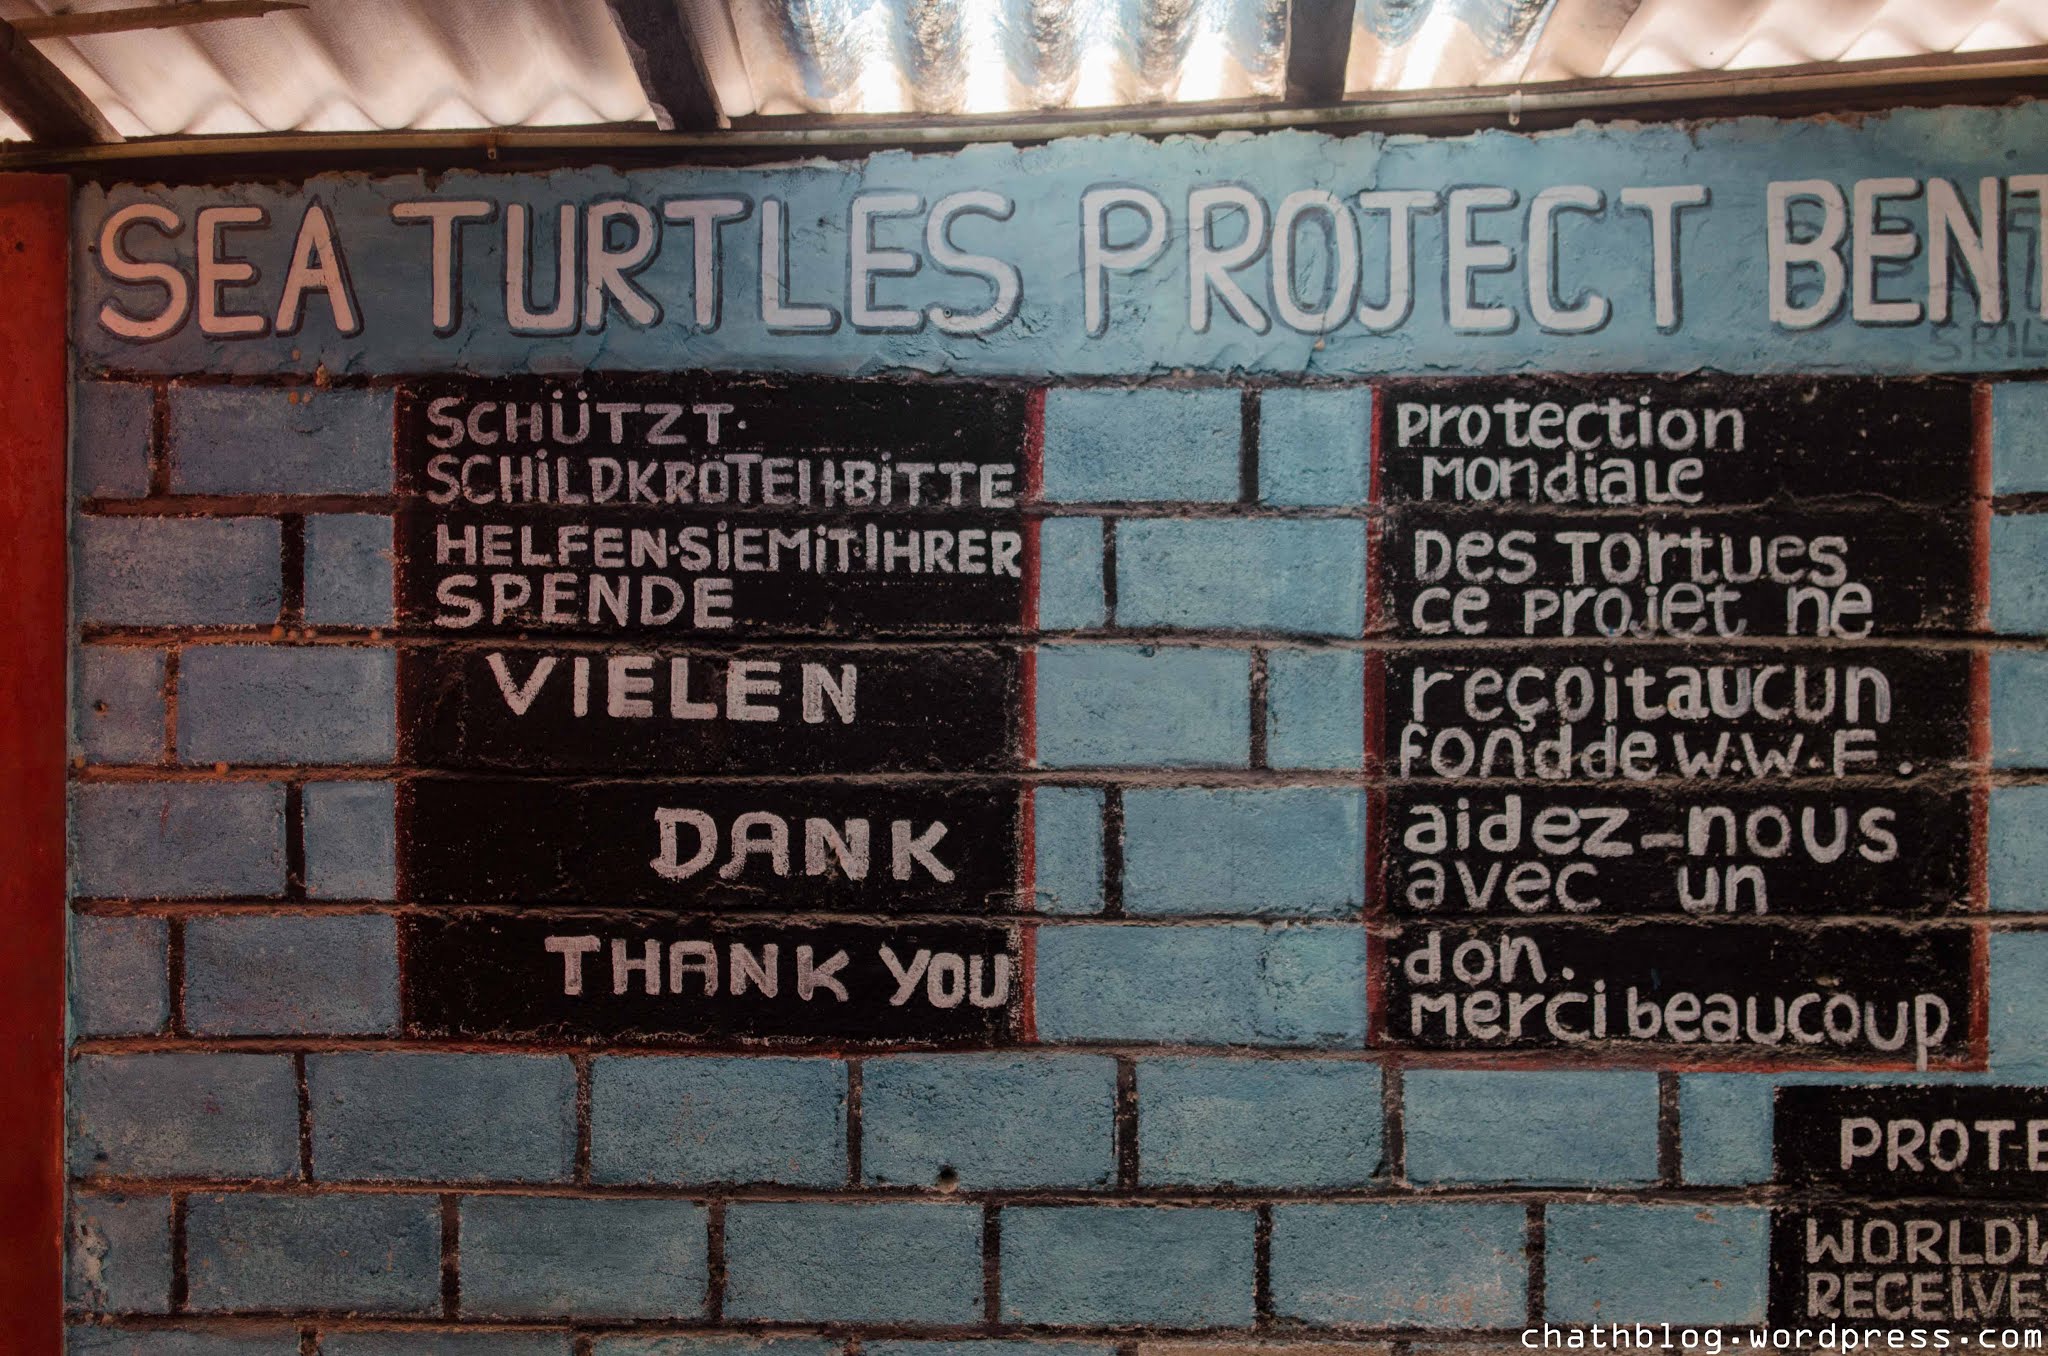 SEA TURTLES PROJECT BENT
SCHÜTZT.
SCHiLDKRÖTEN+BiTTE
HELFEN.SiEMiT.IHRER
SPENDE
VIELEN
DANK
THANK YOU
Protection
Mondiale
Des Tortues
ce projet ne
reçoitaucun
fonddde W.W.F.
aidez-nous
avec un
don.
Merci beaucoup
PROTE
WORLDW
RECEiVE
chathblog.wordpress.com